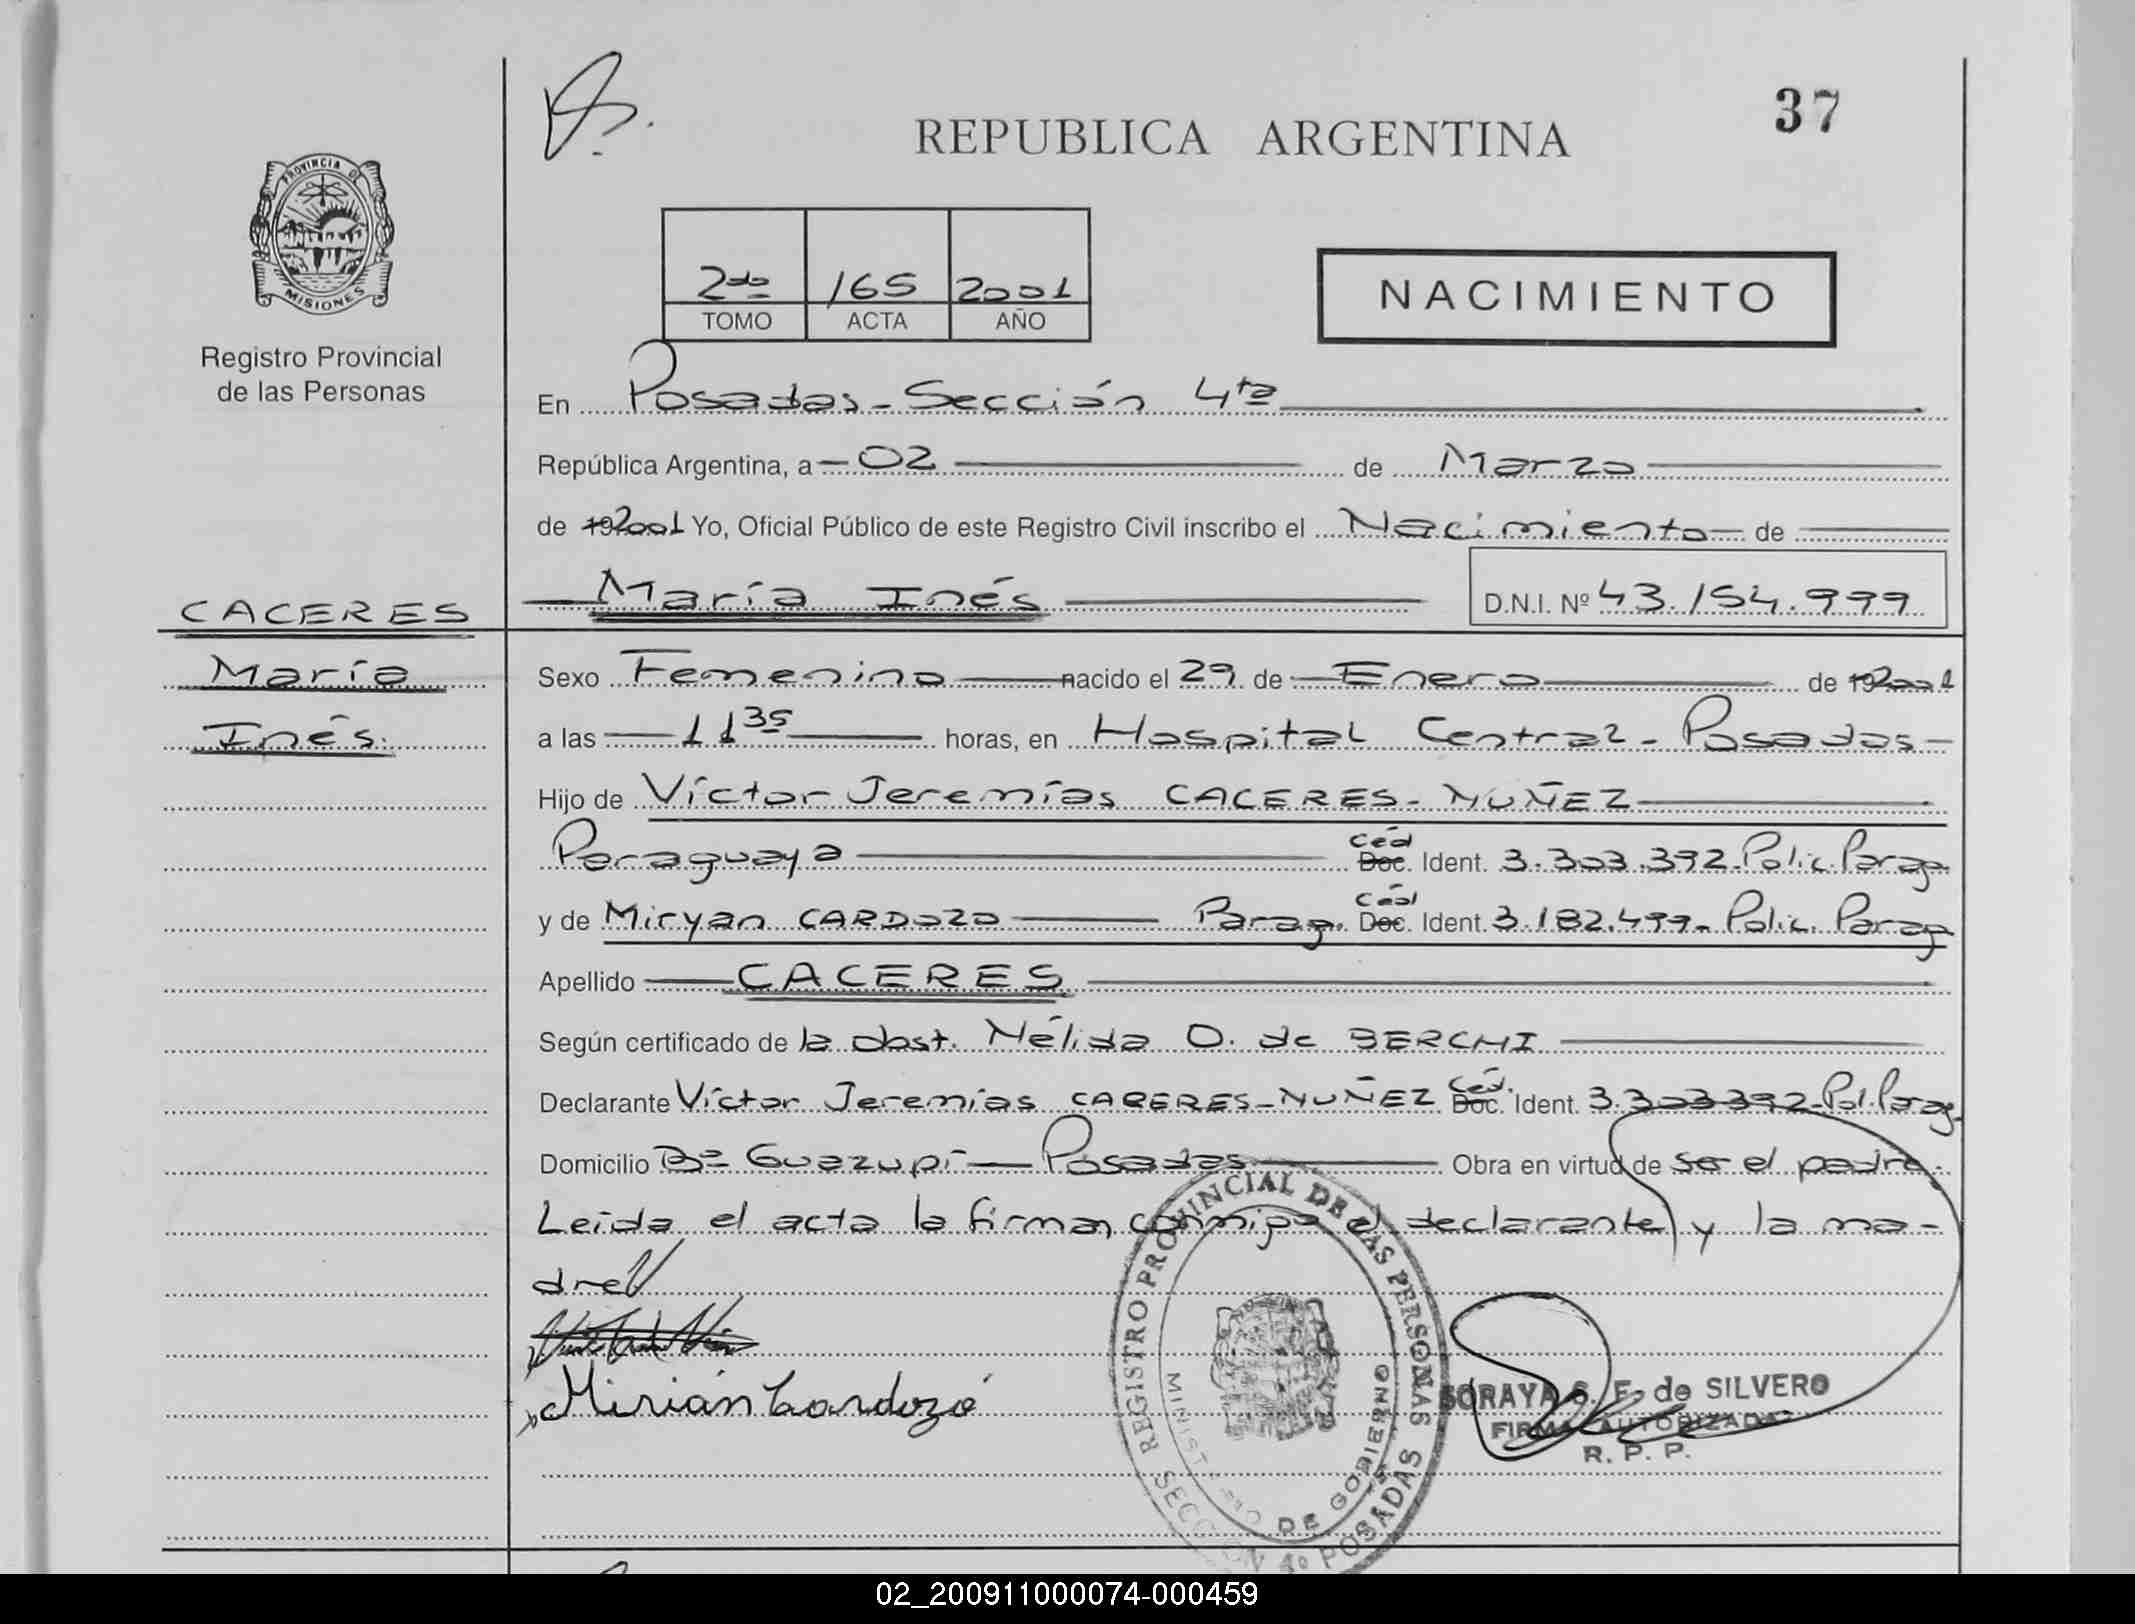 37
REPUBLICA ARGENTINA
PROVINCIA DE
MISIONES
Registro Provincial
de las Personas
2do 165 2001
TOMO ACTA AÑO
NACIMIENTO
En Posadas - Sección 4ta
República Argentina, a 02 de Marzo
de 192001 Yo, Oficial Público de este Registro Civil inscribo el Nacimiento de
María Inés D.N.I. Nº 43.154.999
CACERES
María
Inés.
Sexo Femenino nacido el 29 de Enero de 192001
a las 11 35 horas, en Hospital Central - Posadas -
Hijo de Víctor Jeremías CACERES - NUÑEZ
Paraguaya Céd Doc. Ident. 3.303.392 - Polic. Parag
y de Miryan CARDOZO Parag. Céd Doc. Ident. 3.182.499 - Polic. Parag
Apellido CACERES
Según certificado de la obst. Nélida O. de BERCHI
Declarante Víctor Jeremías CACERES - NUÑEZ Céd. Doc. Ident. 3.303392 - Pol. Parag.
Domicilio Bº Guazupí - Posadas Obra en virtud de ser el padre.
Leída el acta la firman conmigo el declarante y la ma-
dre
Mirián Cardozo
REGISTRO PROVINCIAL DE LAS PERSONAS
MINISTERIO DE GOBIERNO
SECCION 4º POSADAS
SORAYA S. F. de SILVERO
FIRMA AUTORIZADA
R. P. P.
02_200911000074-000459